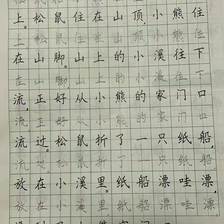 上。松鼠住在山顶,小熊住
在山脚。山上的小溪往下
流,正好从小熊的家门口
流过。松鼠折了一只纸船,
放在小溪里。纸船漂哇漂,